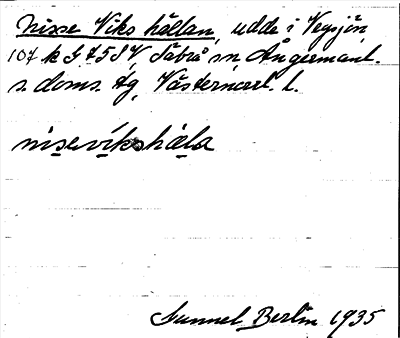 Nisse Viks hällan, udde i Vegsjön
107 k G 75 SV Säbrå sn Ångermanl.
s. doms. dg, Västernorrl. l.
nisevikshæla
Gunnel Berlin 1935